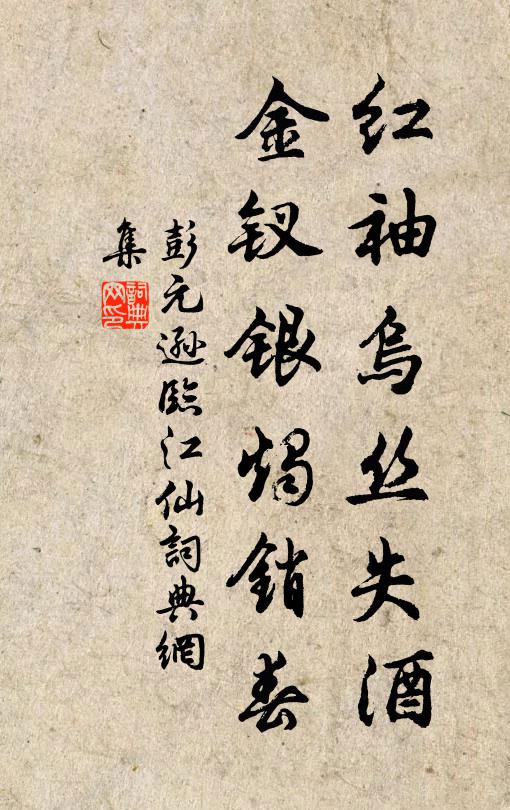 红袖乌丝失酒
金钗银烛销春
彭元逊臨江仙詞典網
集
詞典網印